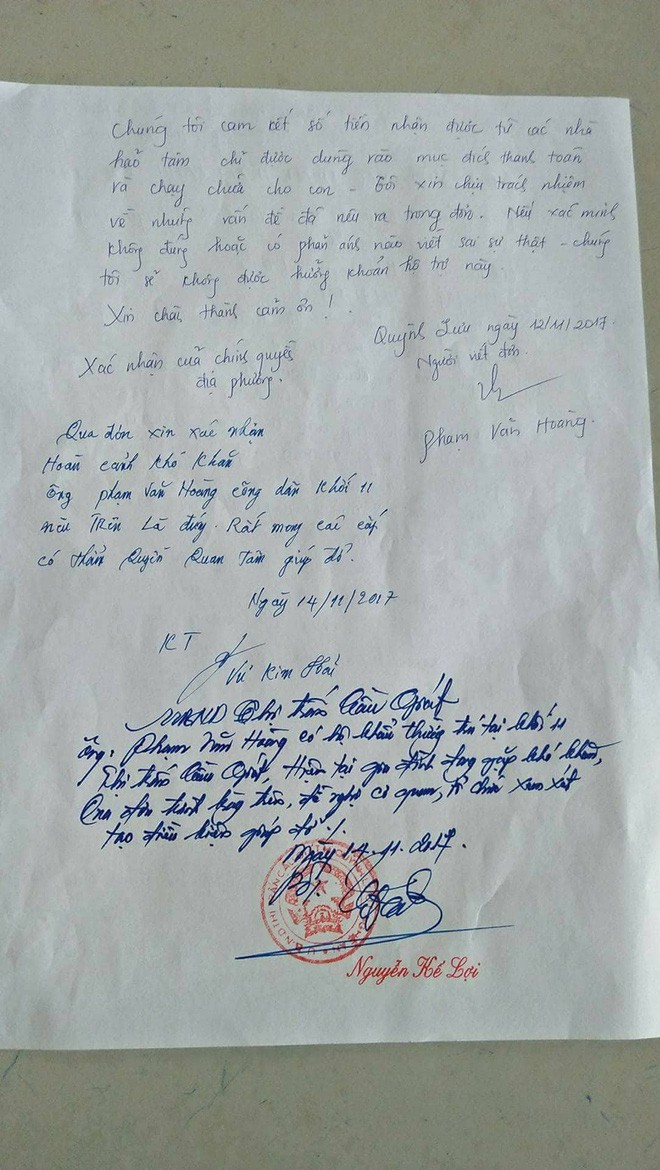 Chúng tôi cam kết số tiền nhận được từ các nhà
hảo tâm chỉ được dùng vào mục đích thanh toán
và chạy chữa cho con - Tôi xin chịu trách nhiệm
về những vấn đề đã nêu ra trong đơn. Nếu xác minh
không đúng hoặc có phản ánh nào viết sai sự thật - chúng
tôi sẽ không được hưởng khoản hỗ trợ này.
Xin chân thành cảm ơn!
Quỳnh Lưu ngày 12/11/2017.
Xác nhận của chính quyền
địa phương.
Người viết đơn.
Phạm Văn Hoàng.
Qua đơn xin xác nhận
Hoàn cảnh khó khăn
Ông phạm Văn Hoàng công dân khối 11
nêu Trên Là đúng. Rất mong các cấp
có thẩm Quyền Quan Tâm giúp đỡ.
Ngày 14/11/2017
KT
Vũ Kim
UBND Thị trấn Cầu Giát
Ông: Phạm Văn Hoàng có hộ khẩu thường trú tại khối 11
Thị trấn Cầu Giát, Hiện tại gia đình đang gặp khó khăn,
đề nghị cơ quan, tổ chức xem xét
tạo điều kiện giúp đỡ ./.
Ngày 14.11.2017.
Nguyễn Kế Lợi